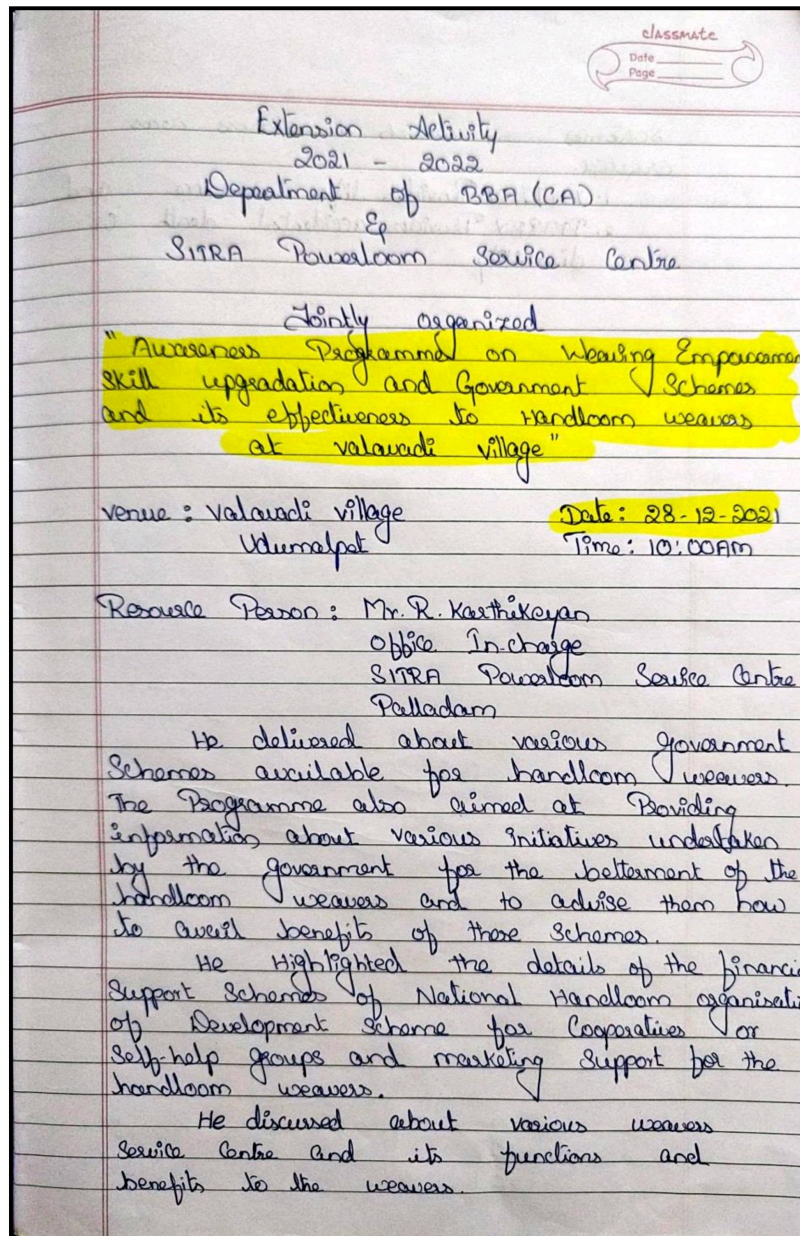 classmate
Date
Page
Extension Activity
2021 - 2022
Depeatment of BBA (CA)
&
SITRA Powerloom Service Centre
Jointly organized
"Awareness Programme on Weaving Empowermen
Skill upgradation and Government Schemes
and its effectiveness to Handloom weavers
at valavadi village"
Venue : Valavadi village
Date: 28-12-2021
Udumalpet
Time: 10:00AM
Resource Person : Mr. R. Karthikeyan
Office In-charge
SITRA Powerloom Service Centre
Palladam
He delivered about various government
Schemes available for handloom weavers.
The Programme also aimed at Providing
information about various initiatives undertaken
by the government for the betterment of the
handloom weavers and to advise them how
to avail benefits of these schemes.
He Highlighted the details of the financi
Support Schemes of National Handloom organisati
of Development Scheme for Cooperatives or
Self-help groups and marketing Support for the
handloom weavers.
He discussed about various weavers
Service Centre and its functions and
benefits to the weavers.